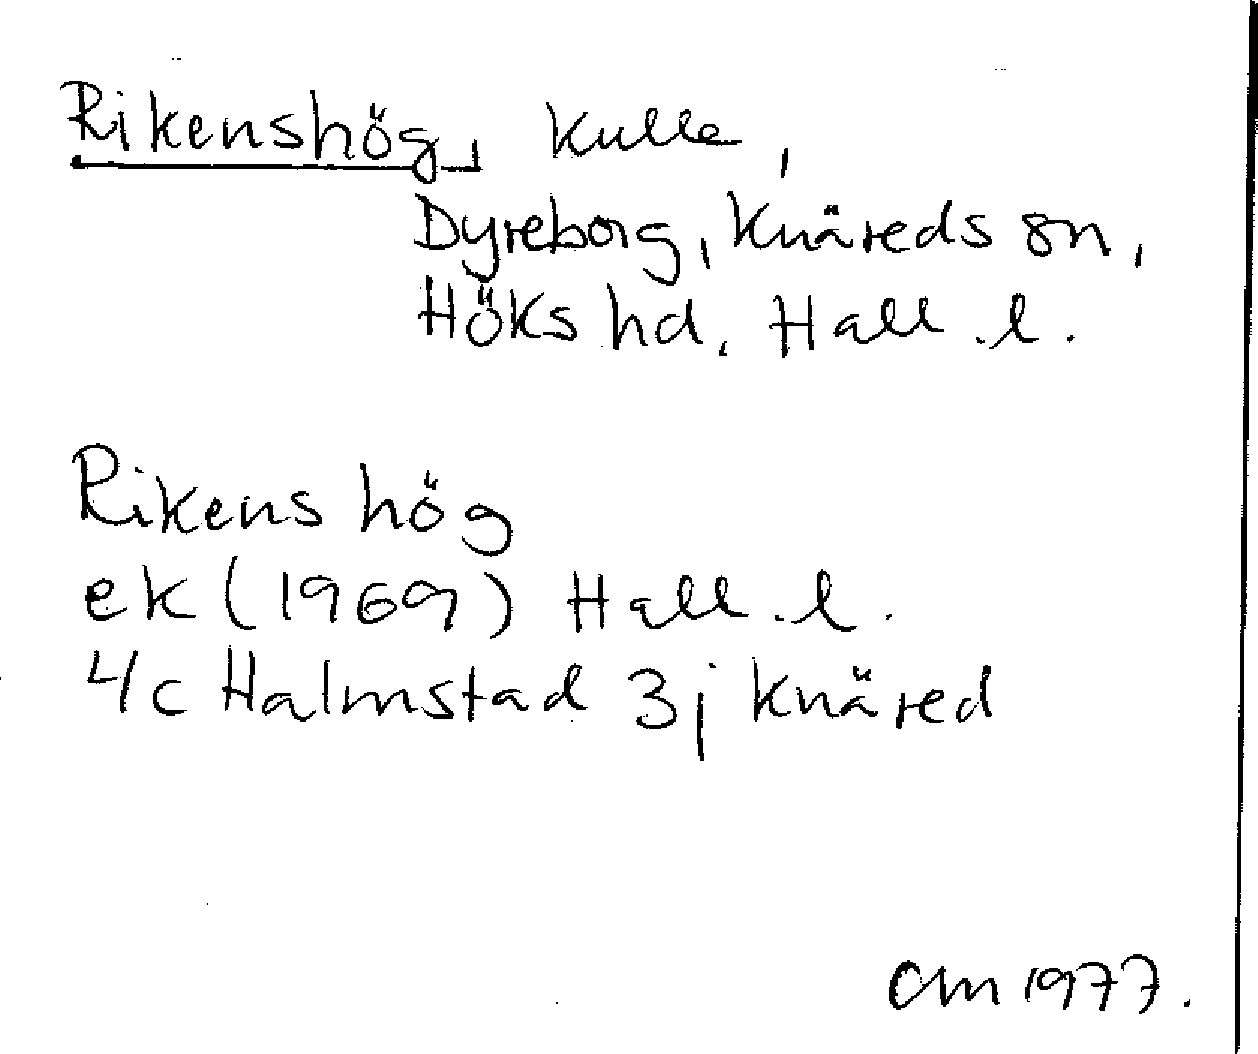 Rikenshög, kulle,
Dyreborg, Knäreds sn,
Höks hd, Hall.l.
Rikens hög
ek (1969) Hall.l.
4c Halmstad 3j Knäred
CM 1977.